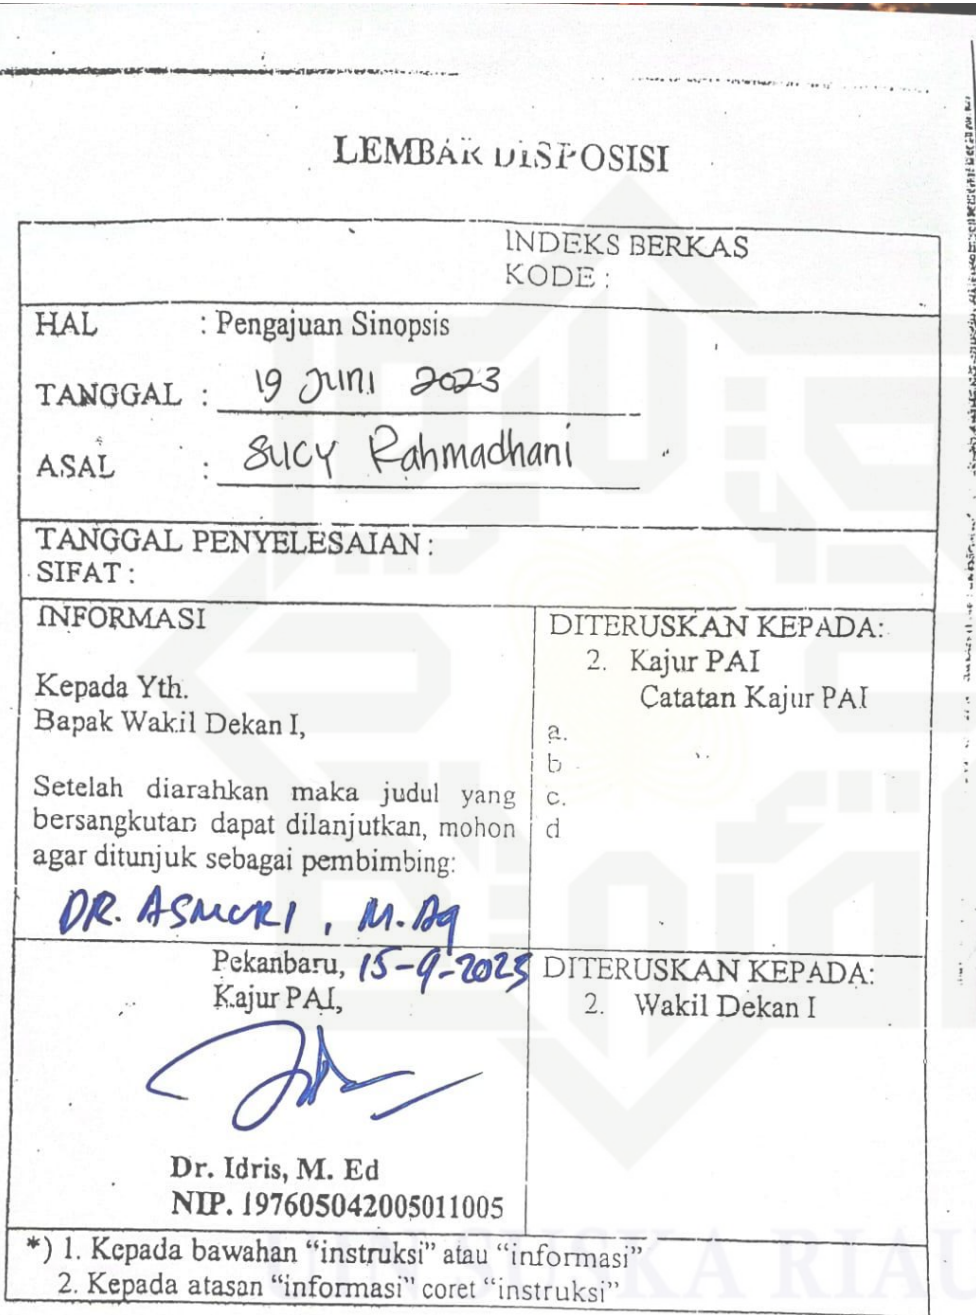 LEMBAR DISPOSISI
INDEKS BERKAS
KODE :
HAL : Pengajuan Sinopsis
TANGGAL : 19 Juni 2023
ASAL : Sucy Rahmadhani
TANGGAL PENYELESAIAN :
SIFAT :
INFORMASI
Kepada Yth.
Bapak Wakil Dekan I,
Setelah diarahkan maka judul yang
bersangkutan dapat dilanjutkan, mohon
agar ditunjuk sebagai pembimbing:
DR. ASMURI, M.Ag
DITERUSKAN KEPADA:
2. Kajur PAI
Catatan Kajur PAI
a.
b
c.
d
Pekanbaru, 15-9-2023
Kajur PAI,
Dr. Idris, M. Ed
NIP. 197605042005011005
DITERUSKAN KEPADA:
2. Wakil Dekan I
*) 1. Kepada bawahan “instruksi” atau “informasi”
2. Kepada atasan “informasi” coret “instruksi”
UIN SUSKA RIAU